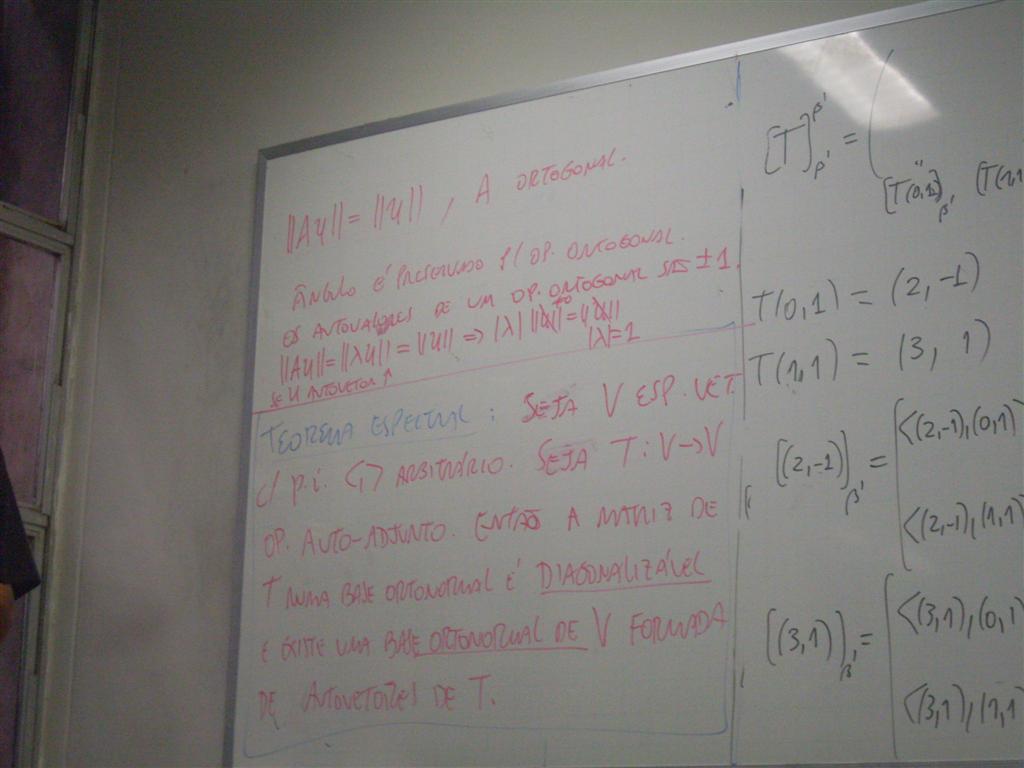 ||Au|| = ||u|| , A ORTOGONAL.
ÂNGULO É PRESERVADO P/ OP. ORTOGONAL.
OS AUTOVALORES DE UM OP. ORTOGONAL SÃO ±1.
||Au|| = ||λu|| = ||u|| => |λ| ||u|| = ||u||
SE u AUTOVETOR ↑
|λ|=1
TEOREMA ESPECTRAL : SEJA V ESP. VET.
c/ p.i. <,> ARBITRÁRIO. SEJA T: V→V
OP. AUTO-ADJUNTO. ENTÃO A MATRIZ DE
T NUMA BASE ORTONORMAL É DIAGONALIZÁVEL
E EXISTE UMA BASE ORTONORMAL DE V FORMADA
DE AUTOVETORES DE T.
[T]β'β' = (
[T(0,1)]β' , [T(1,1
T(0,1) = (2,-1)
T(1,1) = (3, 1)
[(2,-1)]β' = [<(2,-1),(0,1)
<(2,-1),(1,1)
[(3,1)]β' = [<(3,1),(0,1)
<(3,1),(1,1